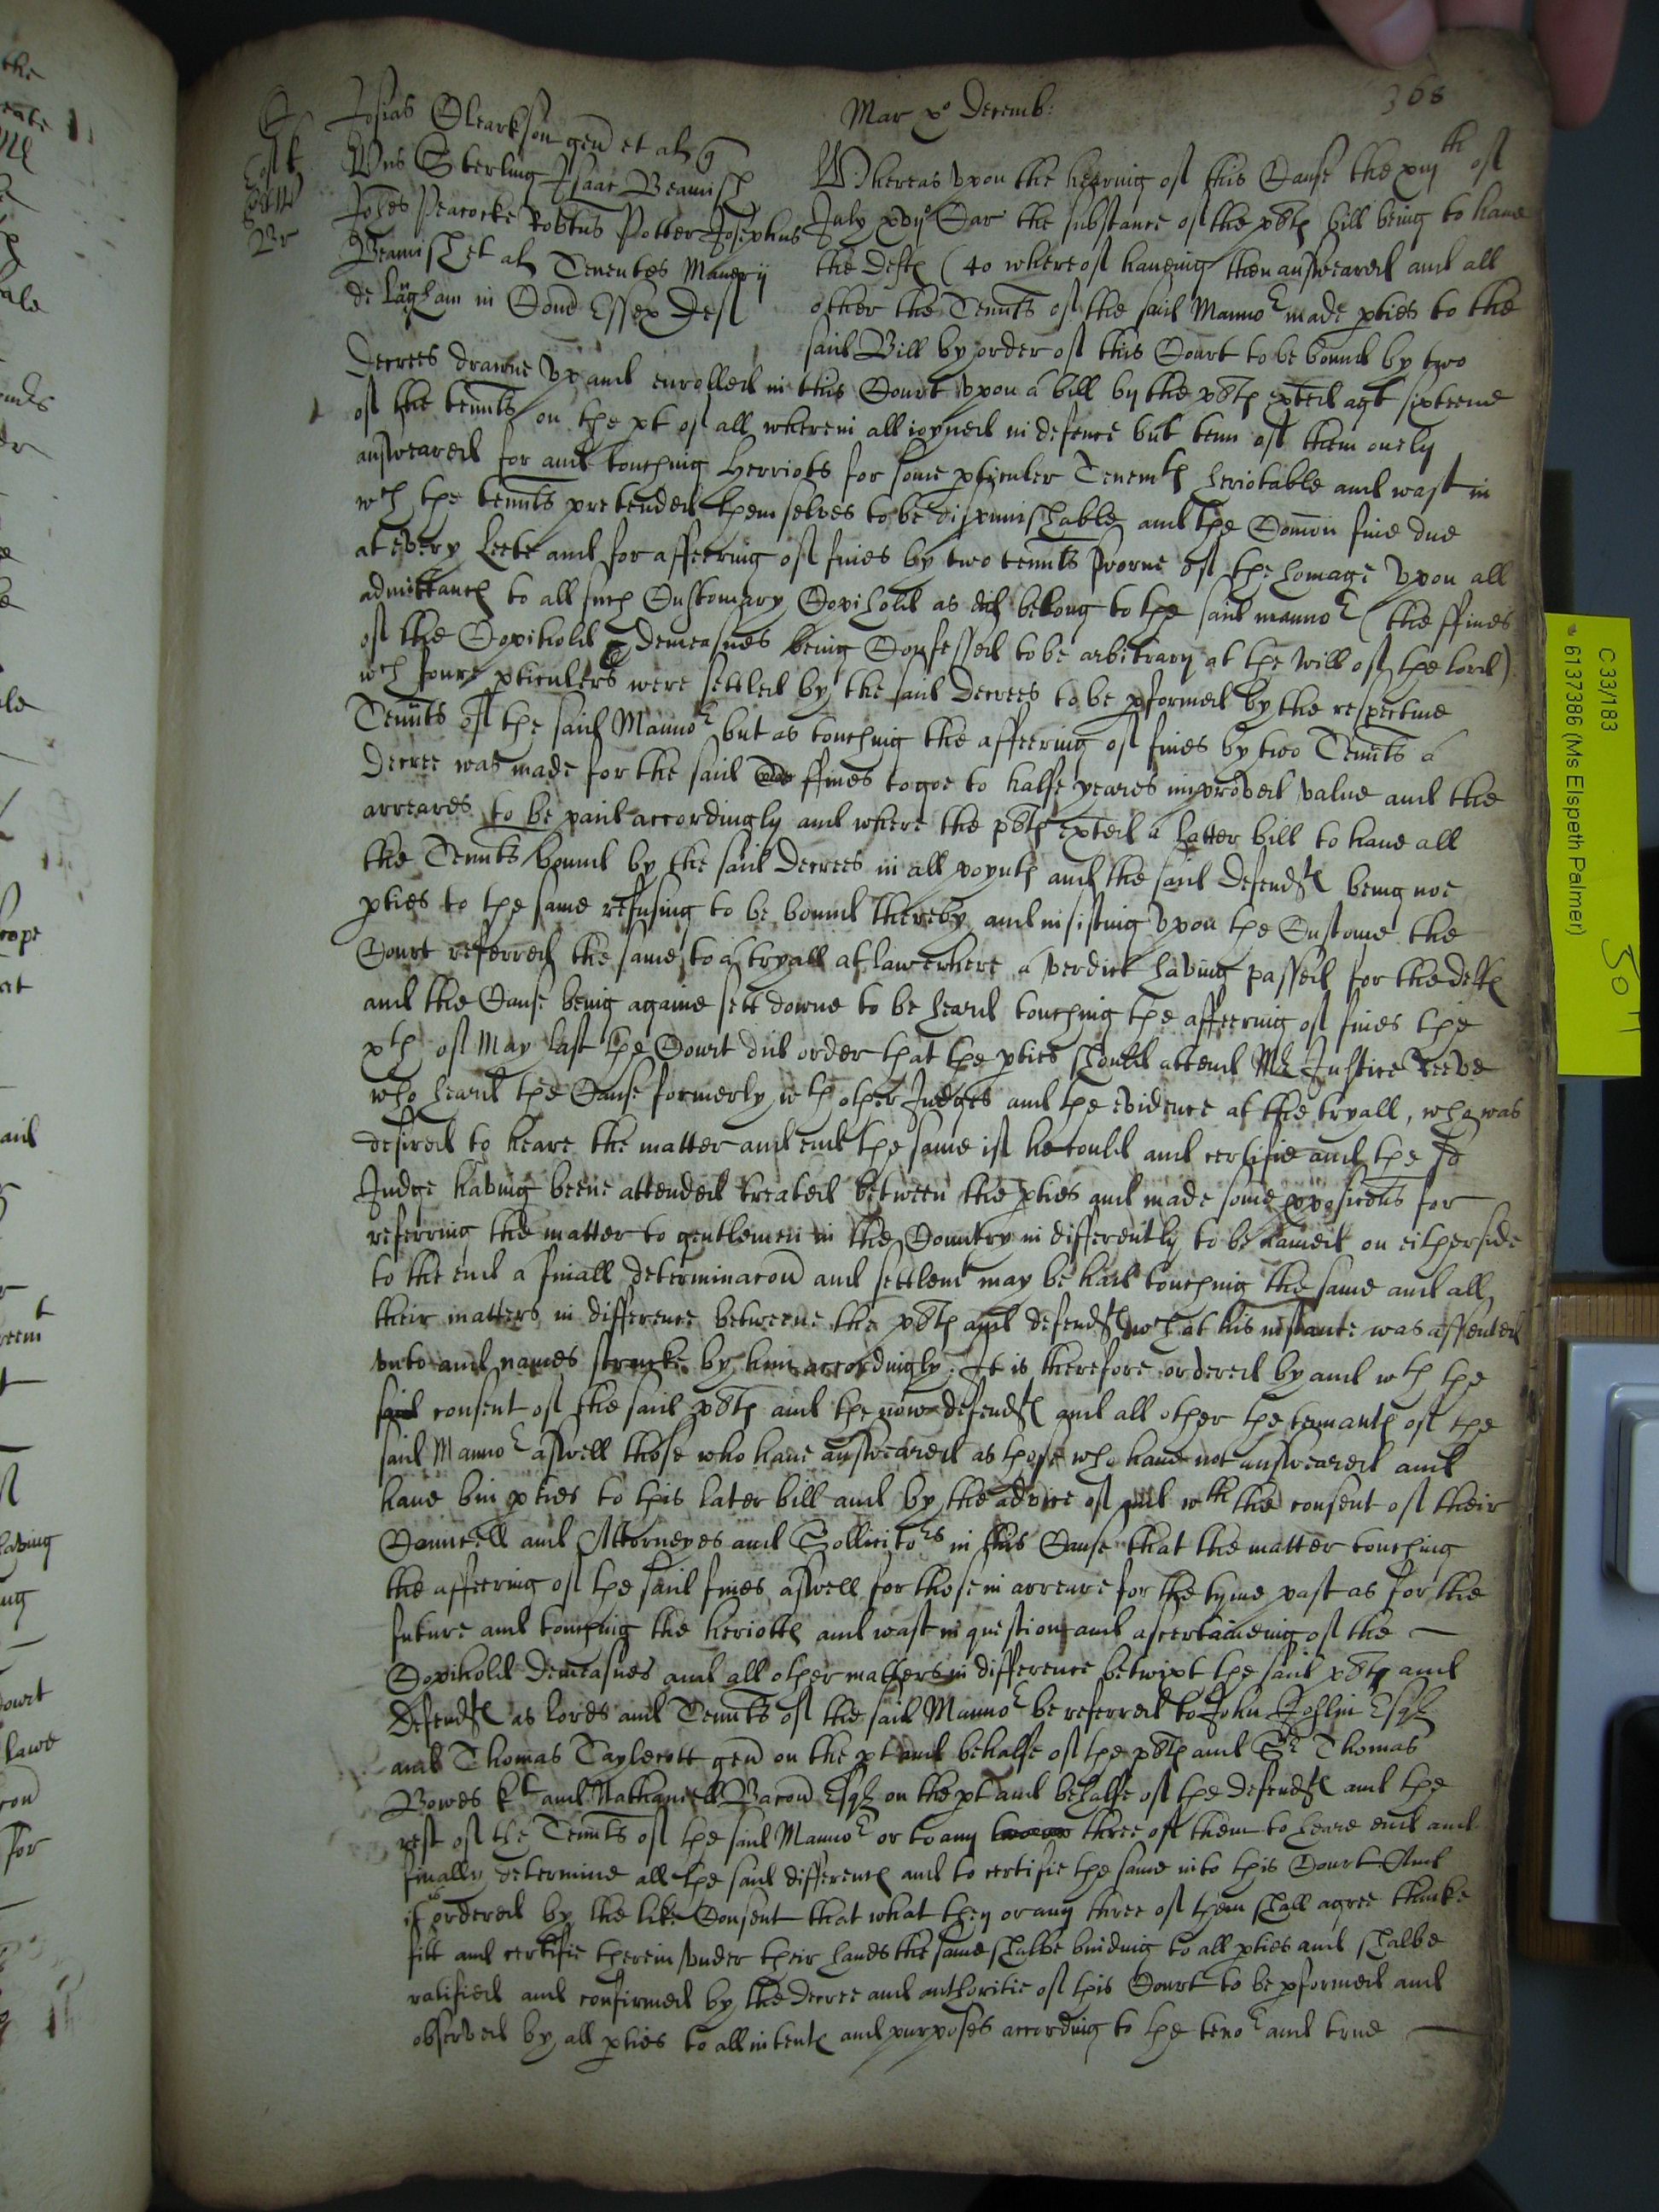 368
Mar xo Decemb:
C
Josias Clearkson gen et al q
Wms Sterling Isaac Beamish
Johes Peacocke Robtus Potter Josephus
Beamish et al Tenentes Manerij
de Langham in Com Essex Def
Br
Whereas vpon the hearing of this Cause the xiijth of
July xvijo Car the substance of the plts bill being to haue
the Defts (40 whereof haueing then answeared and all
other the Tennts of the said Manno.r made pties to the
said Bill by order of this Court to be bound by two
Decrees drawne vp and enrolled in this Court vpon a bill by the plts exhted agt sixteene
of the tennts on the pt of all wherein all ioyned in defence but tenn of them onely
answeared for and touching Herriots for some pticuler Tenemts heriotable and wast in
wch the tennts pretended themselves to be dispunishable and the Comon fine due
at every Leete and for affeering of fines by two tennts sworne of the homage vpon all
admittancs to all such Customary Copihold as did belong to the said manno.r (the ffines
of the Copihold demeasnes being Confessed to be arbitrary at the will of the lord)
wch foure pticulers were settled by the said Decrees to be pformed by the respectiue
Tennts of the said Manno.r but as touching the affeering of fines by two Tennts a
Decree was made for the said ffines to goe to halfe yeares improved value and the
arreares to be paid accordingly and where the plts exhted a latter bill to haue all
the Tennts bound by the said Decrees in all poynts and the said Defendts being noe
pties to the same refusing to be bound thereby and insisting vpon the Custome the
Court referred the same to a tryall at lawe where a verdict having passed for the defts
and the Cause being againe sett downe to be heard touching the affeering of fines the
xth of May last the Court did order that the pties should attend Mr Justice Reeve
who heard the Cause formerly wth other Judges and the evidence at the tryall, who was
desired to heare the matter and end the same if he could and certifie and the sd
Judge having beene attended treated between the pties and made some ppositons for
referring the matter to gentlemen in the Country indifferently to be named on either side
to the end a finall determinacon and settlemt may be had touching the same and all
their matters in difference betweene the plts and defendts wch at his instance was assented
vnto and names strucke by him accordingly. It is therefore ordered by and wth the
said consent of the said plts and the now defendts and all other the tennants of the
said Manno.r aswell those who haue answeared as those who haue not answeared and
haue bin pties to this later bill and by the advice of and wth the consent of their
Councell and Attorneyes and Sollicito.rs in this Cause that the matter touching
the affeering of the said fines aswell for those in arreare for the tyme past as for the
future and touching the heriotts and wast in question and ascertaineing of the
Copihold Demeasnes and all other matters in difference betwixt the said plts and
Defendts as lords and Tennts of the said Manno.r be referred to John Joslin Esqr
and Thomas Taylecott gen on the pt and behalfe of the plts and Sr Thomas
Bowes kt and Nathaniell Bacon Esqr on the pt and behalfe of the defendts and the
rest of the Tennts of the said Manno.r or to any three of them to heare end and
finally determine all the said differencs and to certifie the same into this Court And
it is ordered by the like Consent that what they or any three of them shall agree thinke
fitt and certifie therein vnder their hands the same shalbe binding to all pties and shalbe
ratified and confirmed by the Decree and authoritie of this Court to be pformed and
observed by all pties to all intents and purposes according to the teno.r and true
C 33/183
6137386 (Ms Elspeth Palmer)